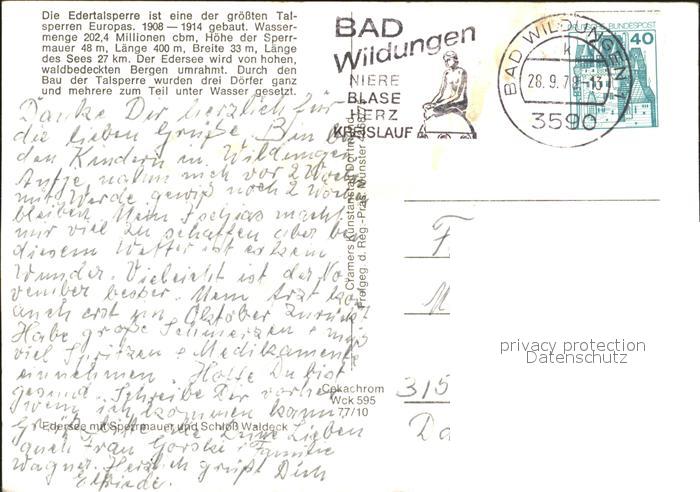 Die Edertalsperre ist eine der größten Tal-
sperren Europas. 1908—1914 gebaut. Wasser-
menge 202,4 Millionen cbm, Höhe der Sperr-
mauer 48 m, Länge 400 m, Breite 33 m, Länge
des Sees 27 km. Der Edersee wird von hohen,
waldbedeckten Bergen umrahmt. Durch den
Bau der Talsperre wurden drei Dörfer ganz
und mehrere zum Teil unter Wasser gesetzt.
Danke Dir herzlich für
die lieben Grüße. Bin bei
den Kindern in Wildungen
Antje nahm mich vor 2 Wochen
mit. Werde gewiß noch 2 Wochen
bleiben. Mein Ischias macht
mir viel zu schaffen aber bei
diesem Wetter ist es kein
Wunder. Vielleicht ist der No-
vember besser. Mein Arzt
auch erst im Oktober zurück
Habe große Schmerzen + muß
viel Spritzen + Medikamente
einnehmen. Hoffe Du bist
gesund. Schreibe Dir vorher
wenn ich kommen kann
Grüße bitte Deine Lieben
auch Frau Familie
Wagner. Herzlich grüßt Dich
Elfriede.
Edersee mit Sperrmauer und Schloß Waldeck
BAD
Wildungen
NIERE
BLASE
HERZ
KREISLAUF
BAD WILDUNGEN
k
3590
DEUTSCHE BUNDESPOST
40
Cramers Kunstanstalt Dortmund
Freigeg. d. Reg.-Präs. Münster
Cekachrom
Wck 595
77/10
F
M
315
privacy protection
Datenschutz